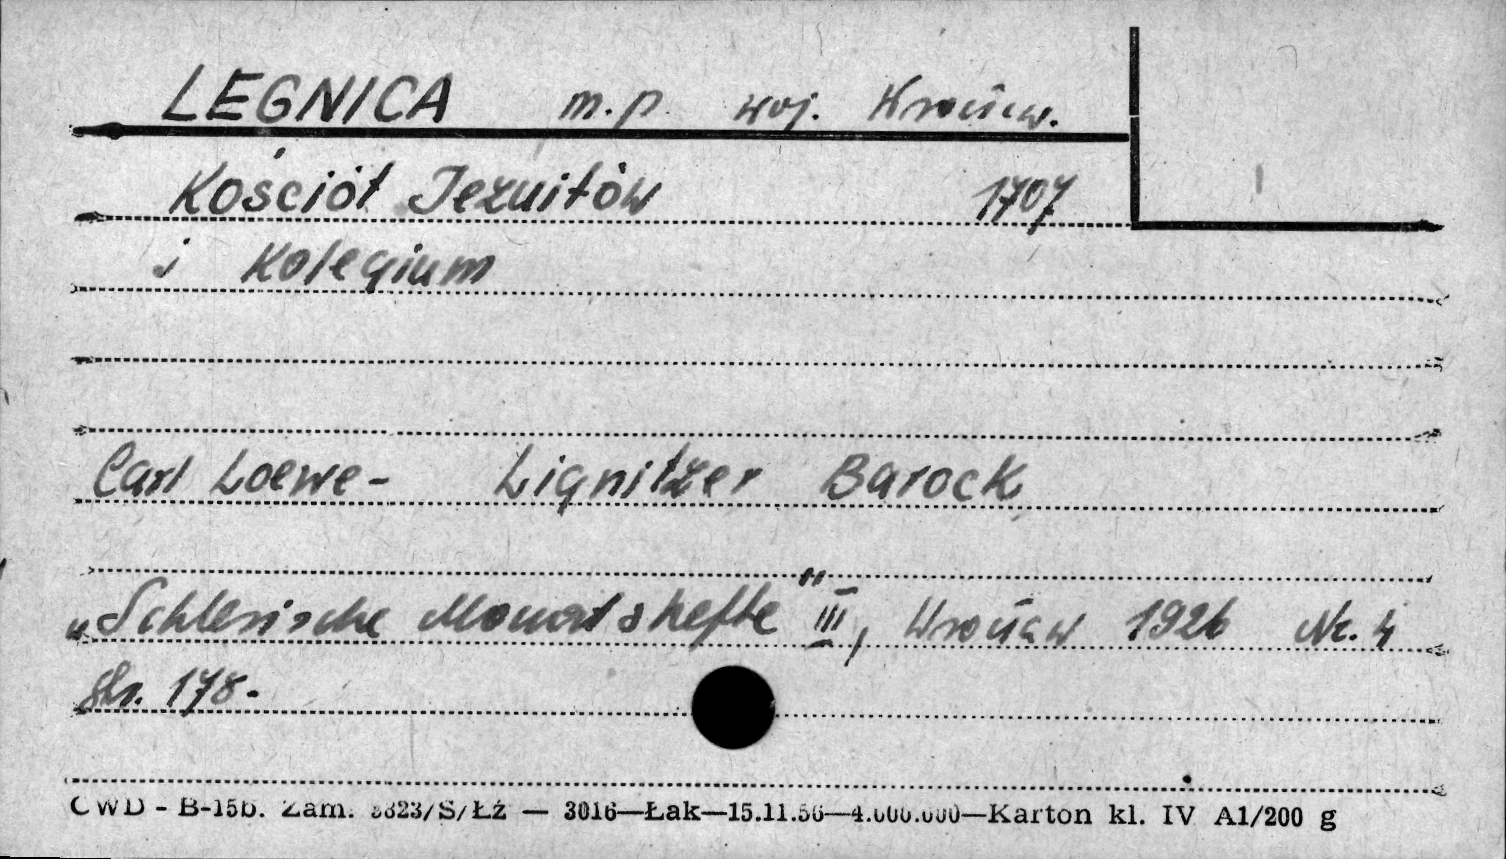 LEGNICA m.p. woj. Wrocław.
Kościół Jezuitów 1707
i Kolegium
Carl Loewe - Lignitzer Barock
„Schlesische Monatshefte" III, Wrocław 1926 Nr. 4
str. 178.
CWD - B-15b. Zam. 3823/S/Łż — 3016—Łak—15.11.56—4.000.000—Karton kl. IV A1/200 g